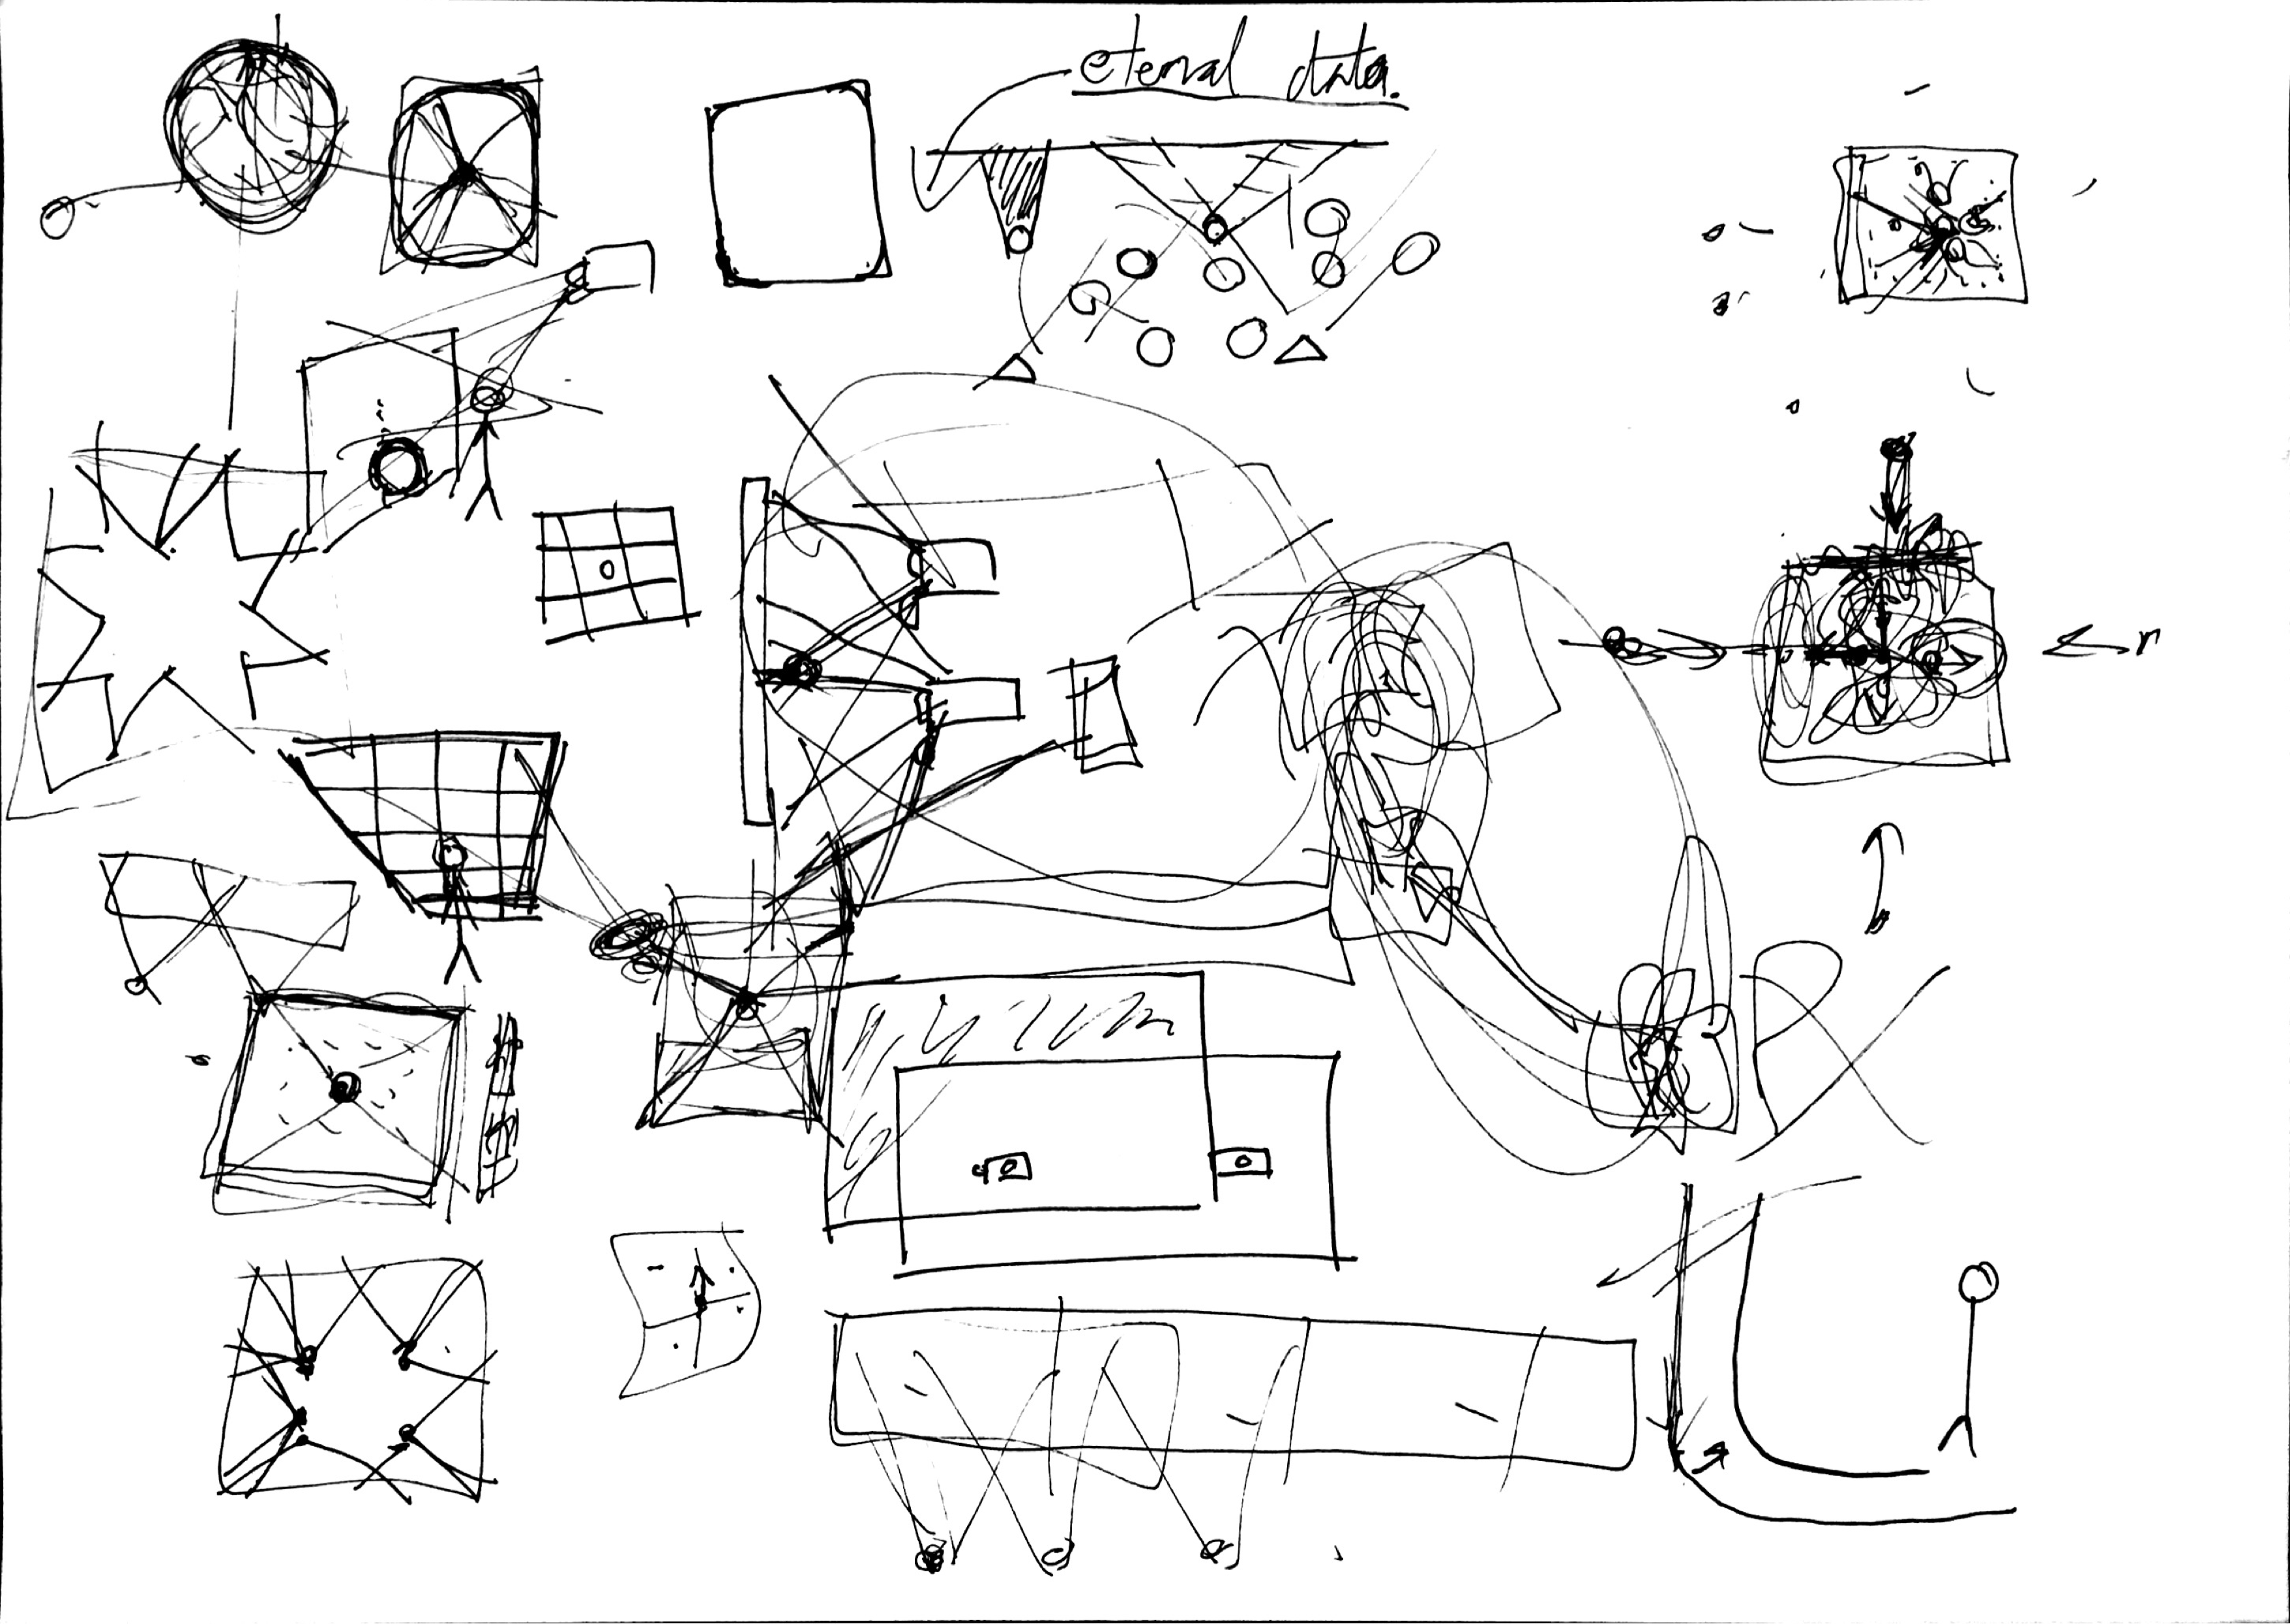 eternal data.